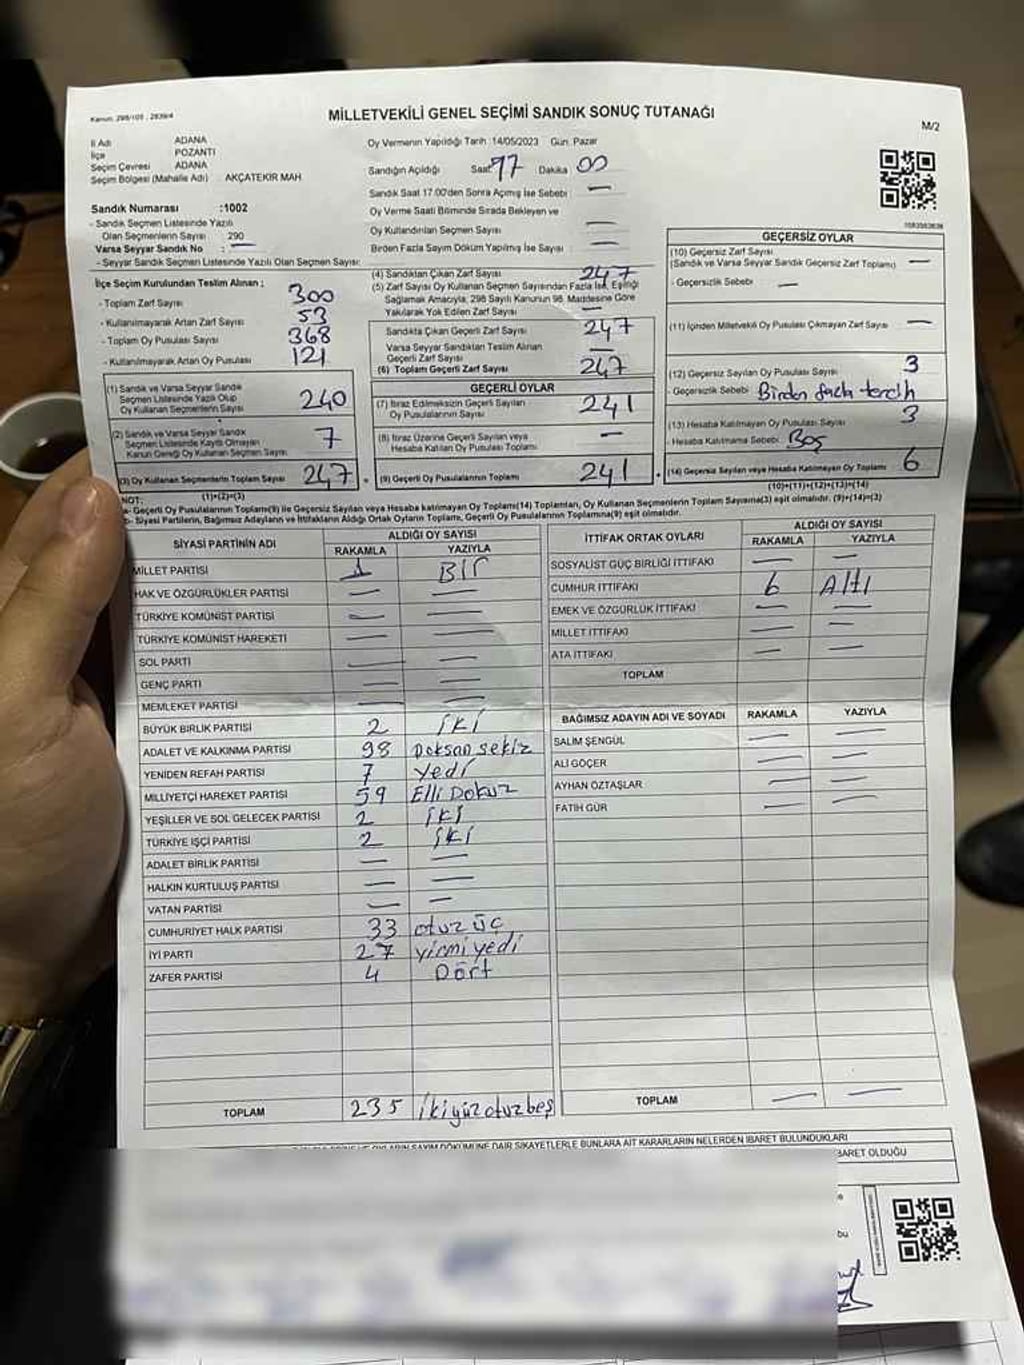 Kanun: 298/105 , 2839/4
MİLLETVEKİLİ GENEL SEÇİMİ SANDIK SONUÇ TUTANAĞI
M/2
İl Adı ADANA
İlçe POZANTI
Seçim Çevresi ADANA
Seçim Bölgesi (Mahalle Adı) : AKÇATEKİR MAH.
Oy Vermenin Yapıldığı Tarih: 14/05/2023 Gün: Pazar
Sandığın Açıldığı Saat 17 Dakika 00
Sandık Saat 17.00'den Sonra Açılmış İse Sebebi : —
Oy Verme Saati Bitiminde Sırada Bekleyen ve
Oy Kullandırılan Seçmen Sayısı : —
Birden Fazla Sayım Döküm Yapılmış İse Sayısı : —
Sandık Numarası :1002
- Sandık Seçmen Listesinde Yazılı
Olan Seçmenlerin Sayısı : 290
Varsa Seyyar Sandık No : —
- Seyyar Sandık Seçmen Listesinde Yazılı Olan Seçmen Sayısı:
İlçe Seçim Kurulundan Teslim Alınan ;
- Toplam Zarf Sayısı 300
- Kullanılmayarak Artan Zarf Sayısı 53
- Toplam Oy Pusulası Sayısı 368
- Kullanılmayarak Artan Oy Pusulası 121
(1) Sandık ve Varsa Seyyar Sandık
Seçmen Listesinde Yazılı Olup
Oy Kullanan Seçmenlerin Sayısı 240
(2) Sandık ve Varsa Seyyar Sandık
Seçmen Listesinde Kayıtlı Olmayan
Kanun Gereği Oy Kullanan Seçmen Sayısı 7
(3) Oy Kullanan Seçmenlerin Toplam Sayısı 247
(1)+(2)=(3)
(4) Sandıktan Çıkan Zarf Sayısı 247
(5) Zarf Sayısı Oy Kullanan Seçmen Sayısından Fazla İse, Eşitliği
Sağlamak Amacıyla, 298 Sayılı Kanunun 98. Maddesine Göre
Yakılarak Yok Edilen Zarf Sayısı —
Sandıkta Çıkan Geçerli Zarf Sayısı 247
Varsa Seyyar Sandıktan Teslim Alınan
Geçerli Zarf Sayısı —
(6) Toplam Geçerli Zarf Sayısı 247
GEÇERLİ OYLAR
(7) İtiraz Edilmeksizin Geçerli Sayılan
Oy Pusulalarının Sayısı 241
(8) İtiraz Üzerine Geçerli Sayılan veya
Hesaba Katılan Oy Pusulası Toplamı —
(9) Geçerli Oy Pusulalarının Toplamı 241
GEÇERSİZ OYLAR
(10) Geçersiz Zarf Sayısı
(Sandık ve Varsa Seyyar Sandık Geçersiz Zarf Toplamı) —
- Geçersizlik Sebebi : —
(11) İçinden Milletvekili Oy Pusulası Çıkmayan Zarf Sayısı —
(12) Geçersiz Sayılan Oy Pusulası Sayısı 3
- Geçersizlik Sebebi : Birden fazla tercih
(13) Hesaba Katılmayan Oy Pusulası Sayısı 3
- Hesaba Katılmama Sebebi: Boş
(14) Geçersiz Sayılan veya Hesaba Katılmayan Oy Toplamı 6
(10)+(11)+(12)+(13)=(14)
NOT:
a- Geçerli Oy Pusulalarının Toplamı(9) ile Geçersiz Sayılan veya Hesaba katılmayan Oy Toplamı(14) Toplamları, Oy Kullanan Seçmenlerin Toplam Sayısına(3) eşit olmalıdır. (9)+(14)=(3)
b- Siyasi Partilerin, Bağımsız Adayların ve İttifakların Aldığı Ortak Oyların Toplamı, Geçerli Oy Pusulalarının Toplamına(9) eşit olmalıdır.
SİYASİ PARTİNİN ADI ALDIĞI OY SAYISI
RAKAMLA YAZIYLA
MİLLET PARTİSİ 1 BİR
HAK VE ÖZGÜRLÜKLER PARTİSİ — —
TÜRKİYE KOMÜNİST PARTİSİ — —
TÜRKİYE KOMÜNİST HAREKETİ — —
SOL PARTİ — —
GENÇ PARTİ — —
MEMLEKET PARTİSİ — —
BÜYÜK BİRLİK PARTİSİ 2 iKi
ADALET VE KALKINMA PARTİSİ 98 Doksan sekiz
YENİDEN REFAH PARTİSİ 7 Yedi
MİLLİYETÇİ HAREKET PARTİSİ 59 Elli Dokuz
YEŞİLLER VE SOL GELECEK PARTİSİ 2 iKi
TÜRKİYE İŞÇİ PARTİSİ 2 iKi
ADALET BİRLİK PARTİSİ — —
HALKIN KURTULUŞ PARTİSİ — —
VATAN PARTİSİ — —
CUMHURİYET HALK PARTİSİ 33 otuz üç
İYİ PARTİ 27 yirmi yedi
ZAFER PARTİSİ 4 Dört
TOPLAM 235 ikiyüzotuzbeş
İTTİFAK ORTAK OYLARI ALDIĞI OY SAYISI
RAKAMLA YAZIYLA
SOSYALİST GÜÇ BİRLİĞİ İTTİFAKI — —
CUMHUR İTTİFAKI 6 Altı
EMEK VE ÖZGÜRLÜK İTTİFAKI — —
MİLLET İTTİFAKI — —
ATA İTTİFAKI — —
TOPLAM
BAĞIMSIZ ADAYIN ADI VE SOYADI RAKAMLA YAZIYLA
SALİM ŞENGÜL — —
ALİ GÖÇER — —
AYHAN ÖZTAŞLAR — —
FATİH GÜR — —
TOPLAM — —
DÖKÜMÜNE DAİR ŞİKAYETLERLE BUNLARA AİT KARARLARIN NELERDEN İBARET BULUNDUKLARI
BARET OLDUĞU